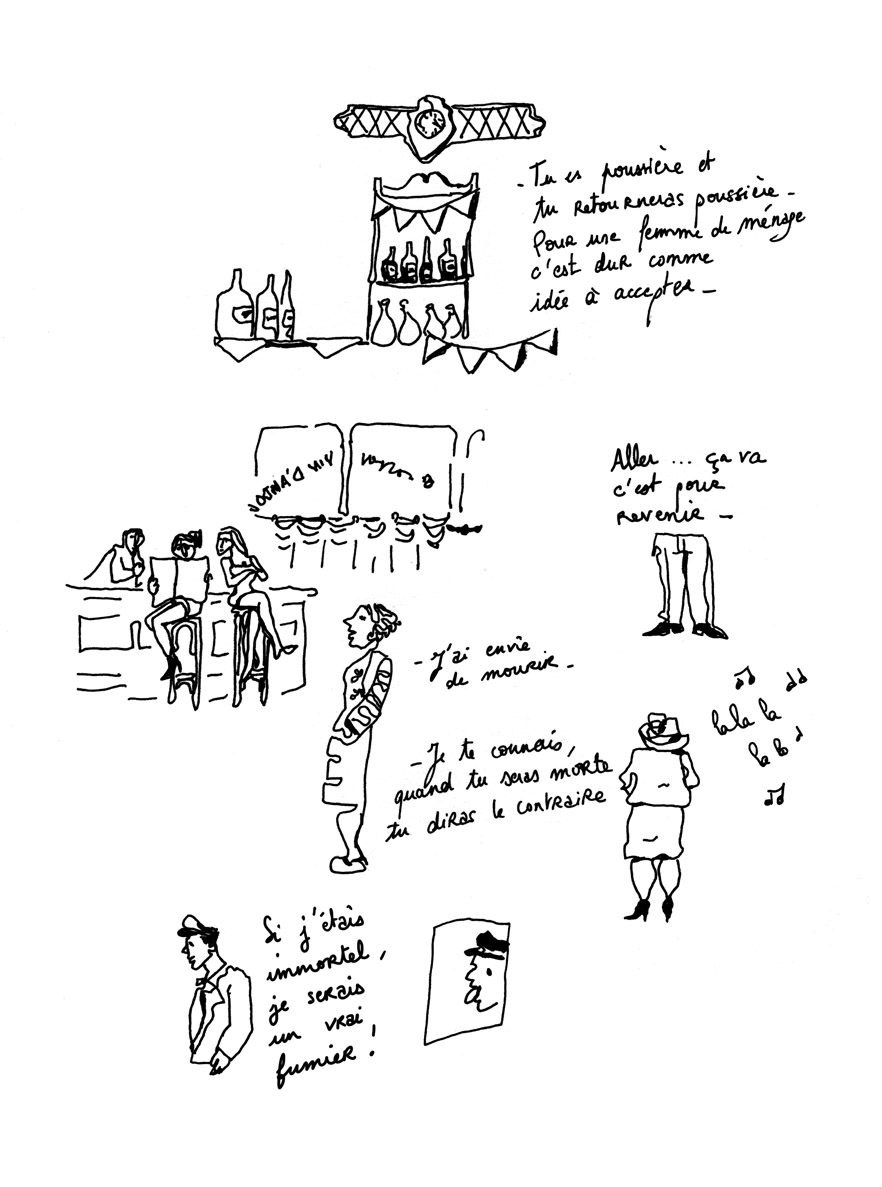 - Tu es poussière et
tu retourneras poussière -
Pour une femme de ménage
c'est dur comme
idée à accepter -
VIN D'ANJOU
Aller ... ça va
c'est pour
revenir -
- J'ai envie
de mourir -
- Je te connais,
quand tu seras morte
tu diras le contraire
lala la
la la
Si j'étais
immortel,
je serais
un vrai
fumier !